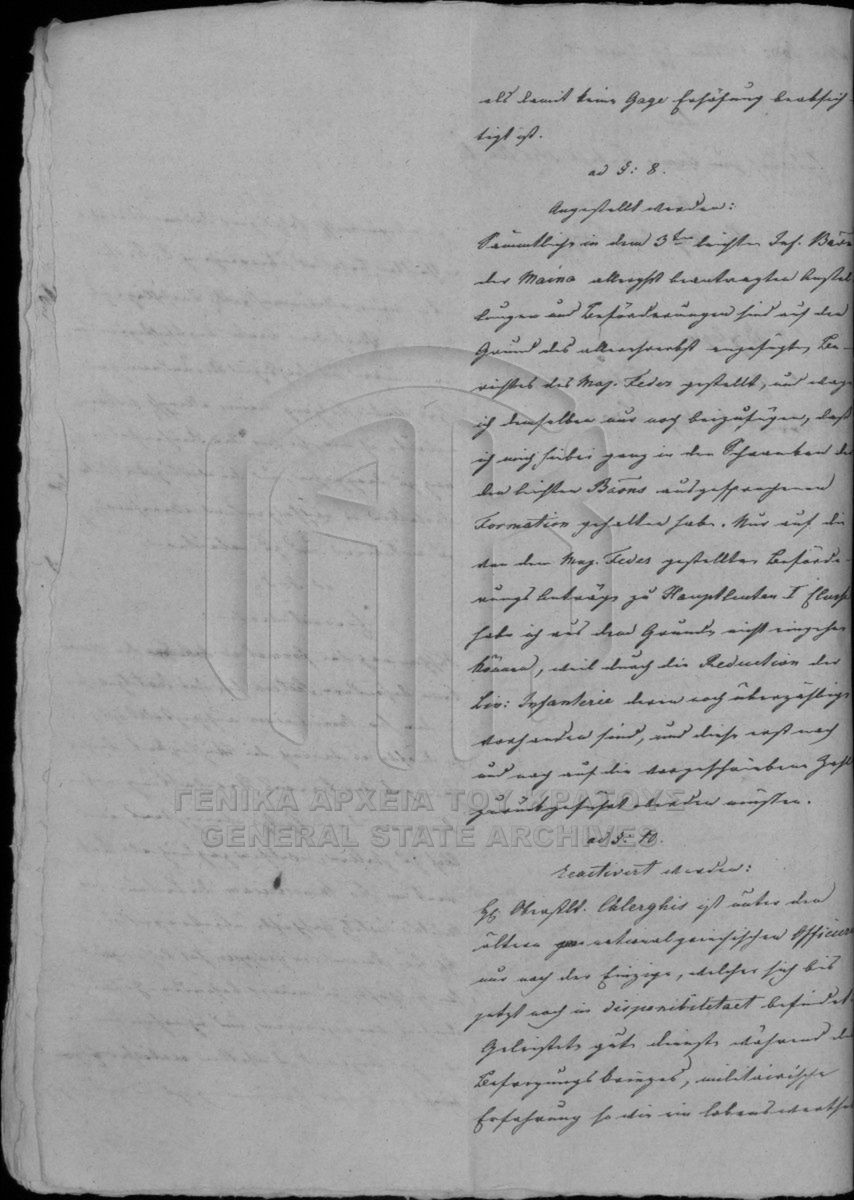 als damit keine Gage Erhöhung beabsich-
tigt ist.
ad §: 8.
Angestellt werden:
Sämmtliche in dem 3ten leichten Inf. Baon
der Maina allerhst beantragten Anstel
lungen und Beförderungen sind auf den
Grund des allerehrerbst angefügten Be-
richtes des Maj. Feder gestellt, und wage
ich demselben nur noch beizufügen, daß
ich mich hiebei ganz in den Schranken der
den leichten Baons ausgesprochenen
Formation gehalten habe. Nur auf die
von dem Maj. Feder gestellten Beförde-
rungs Anträge zu Hauptleuten I Classe
habe ich aus dem Grunde nicht eingehen
können, weil durch die Reduction der
Lin: Infanterie deren noch überzählige
vorhanden sind, und diese erst nach
und nach auf die vorgeschriebene Zahl
zurückgeführt werden müssen.
ad §: 10.
Reactivirt werden:
Oberstlt. Chlerghis ist unter den
ältern nationalgriechischen Officiere
nur noch der Einzige, welcher sich bis
jetzt noch in Disponibilitaet befindet.
Geleistete gute Dienste während de
Befreyungskrieges, militairische
Erfahrung so wie ein lobenswerthe
ΓΕΝΙΚΑ ΑΡΧΕΙΑ ΤΟΥ ΚΡΑΤΟΥΣ
GENERAL STATE ARCHIVES